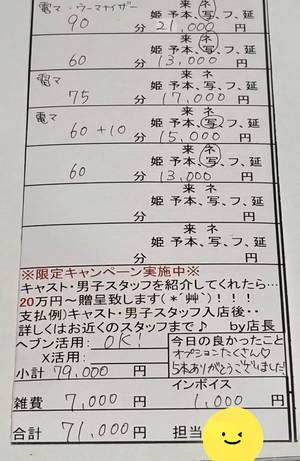 来 ネ
電マ・ウーマナイザー 姫 予 本、写、フ、延
90 分 21,000 円
来 ネ
姫 予 本、写、フ、延
60 分 13,000 円
来 ネ
電マ 姫 予 本、写、フ、延
75 分 17,000 円
来 ネ
電マ 姫 予 本、写、フ、延
60+10 分 15,000 円
来 ネ
姫 予 本、写、フ、延
60 分 13,000 円
来 ネ
姫 予 本、写、フ、延
分 円
来 ネ
姫 予 本、写、フ、延
分 円
※限定キャンペーン実施中※
キャスト・男子スタッフを紹介してくれたら…
20万円~贈呈致します(*´艸`)!!!
支払例)キャスト・男子スタッフ入店後・・
詳しくはお近くのスタッフまで♪ by店長
ヘブン活用: OK!
X活用:
小計 79,000 円
今日の良かったこと
オプションたくさん♡
5本ありがとうございました!
インボイス
雑費 7,000 円 1,000 円
合計 71,000 円 担当